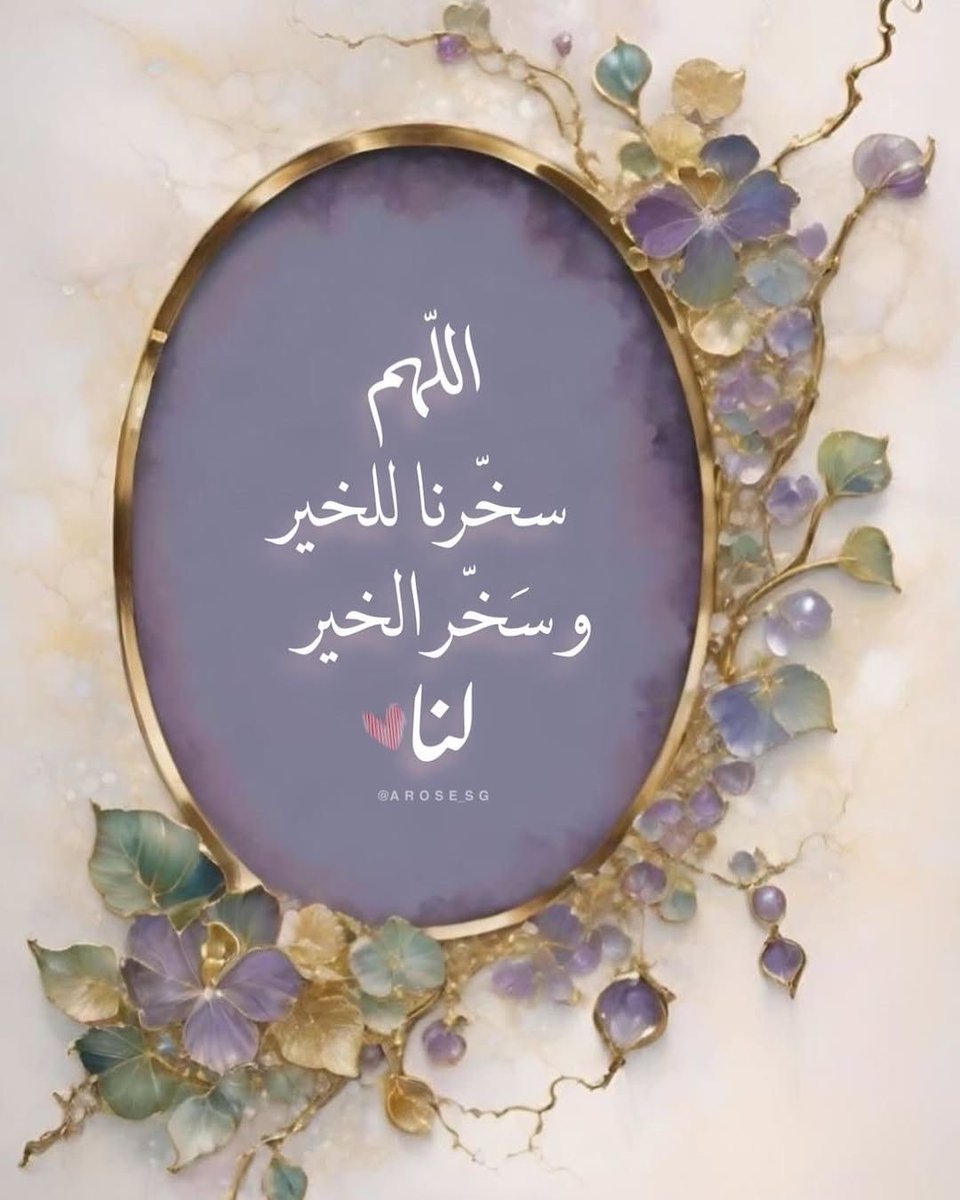 اللّهم
سخّرنا للخير
و سَخّر الخير
لنا
@AROSE_SG